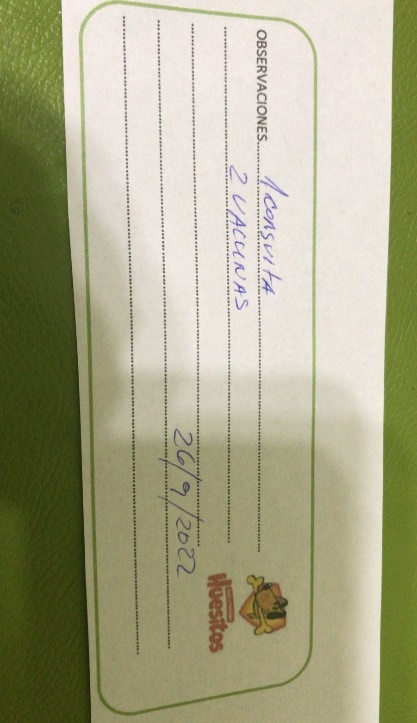 OBSERVACIONES 1 CONSULTA
2 VACUNAS
26/9/2022
Huesitos